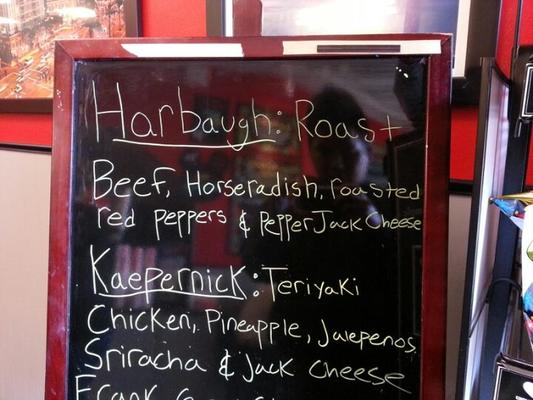 Harbaugh: Roast
Beef, Horseradish, roasted
red peppers & Pepper Jack Cheese
Kaepernick: Teriyaki
Chicken, Pineapple, Jalepenos
Sriracha & Jack Cheese
Frank